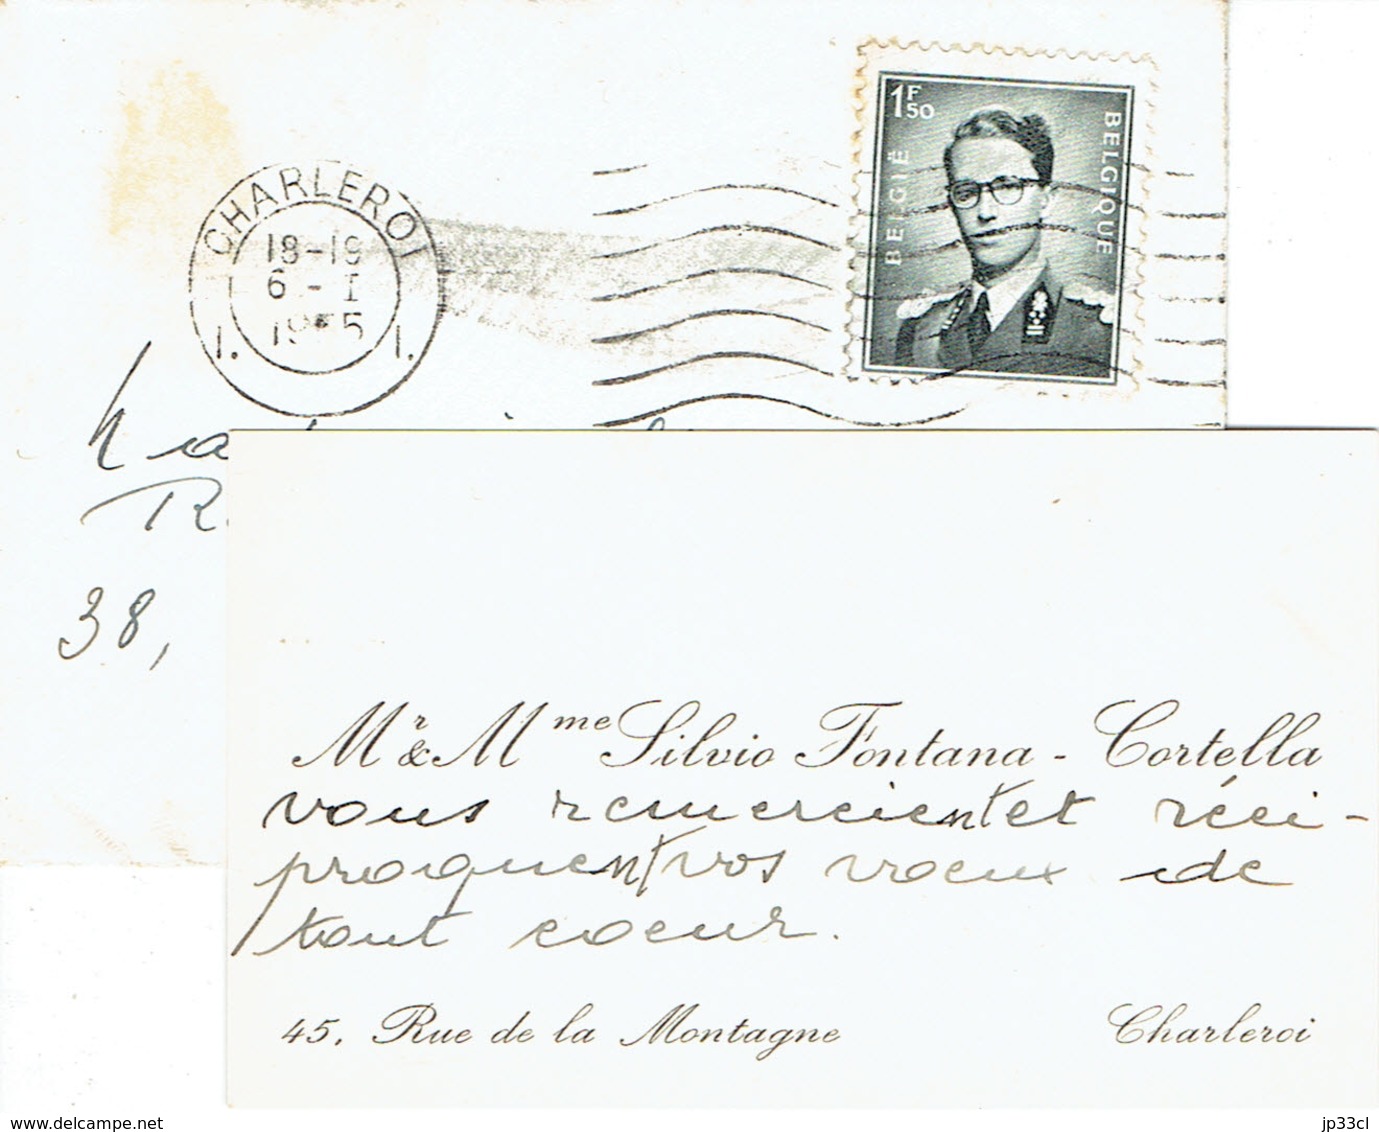 CHARLEROI
18-19
6-I
1. 1.
1F50
BELGIË
BELGIQUE
38,
Mr & Mme Silvio Fontana - Cortella
vous remercient et réci-
proquent vos voeux de
tout coeur.
45, Rue de la Montagne Charleroi
delcampe.net
jp33cl